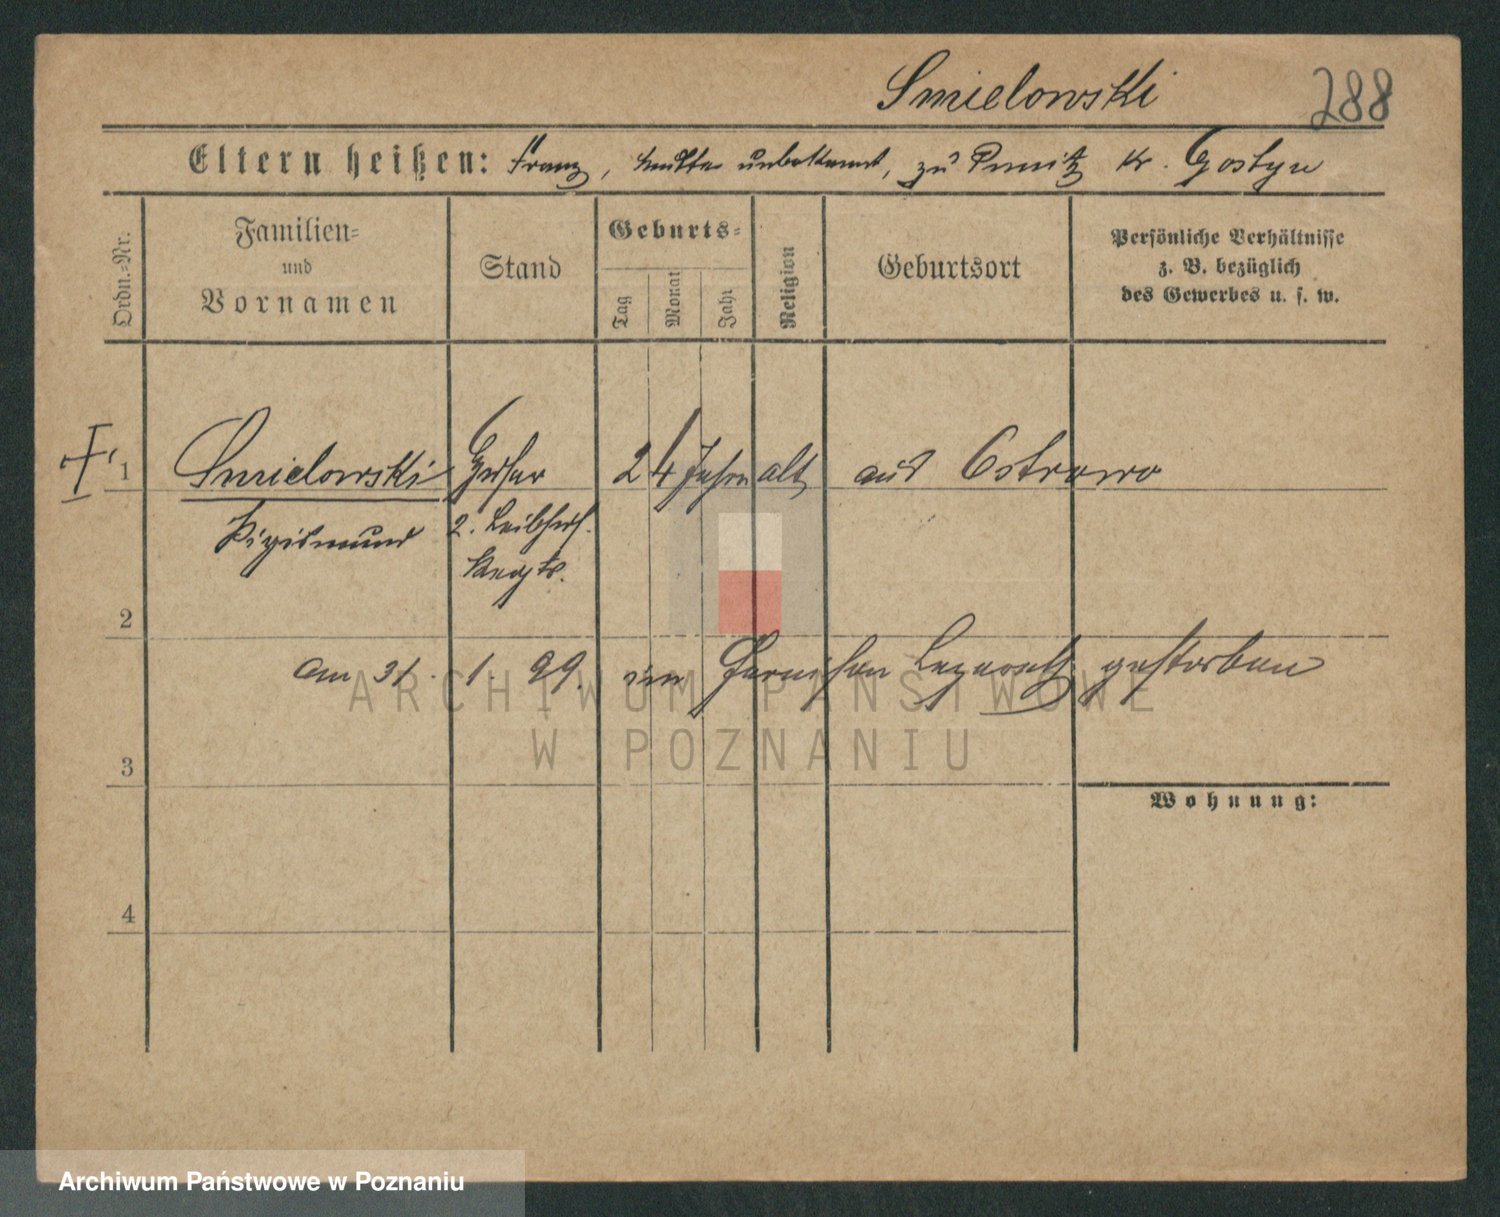 Smielowski 288
Eltern heißen: Franz, Mutter unbekannt, zu Punitz Kr. Gostyn
Ordn.-Nr.
Familien-
und
Vornamen
Stand
Geburts-
Tag
Monat
Jahr
Religion
Geburtsort
Persönliche Verhältnisse
z. B. bezüglich
des Gewerbes u. s. w.
1 Smielowski Husar 24 Jahre alt, aus Ostrowo
Sigismund 2. Leibhus.
Regts.
2
am 31. 1. 99. im Garnison Lazareth gestorben
ARCHIWUM PAŃSTWOWE
W POZNANIU
3
Wohnung:
4
Archiwum Państwowe w Poznaniu